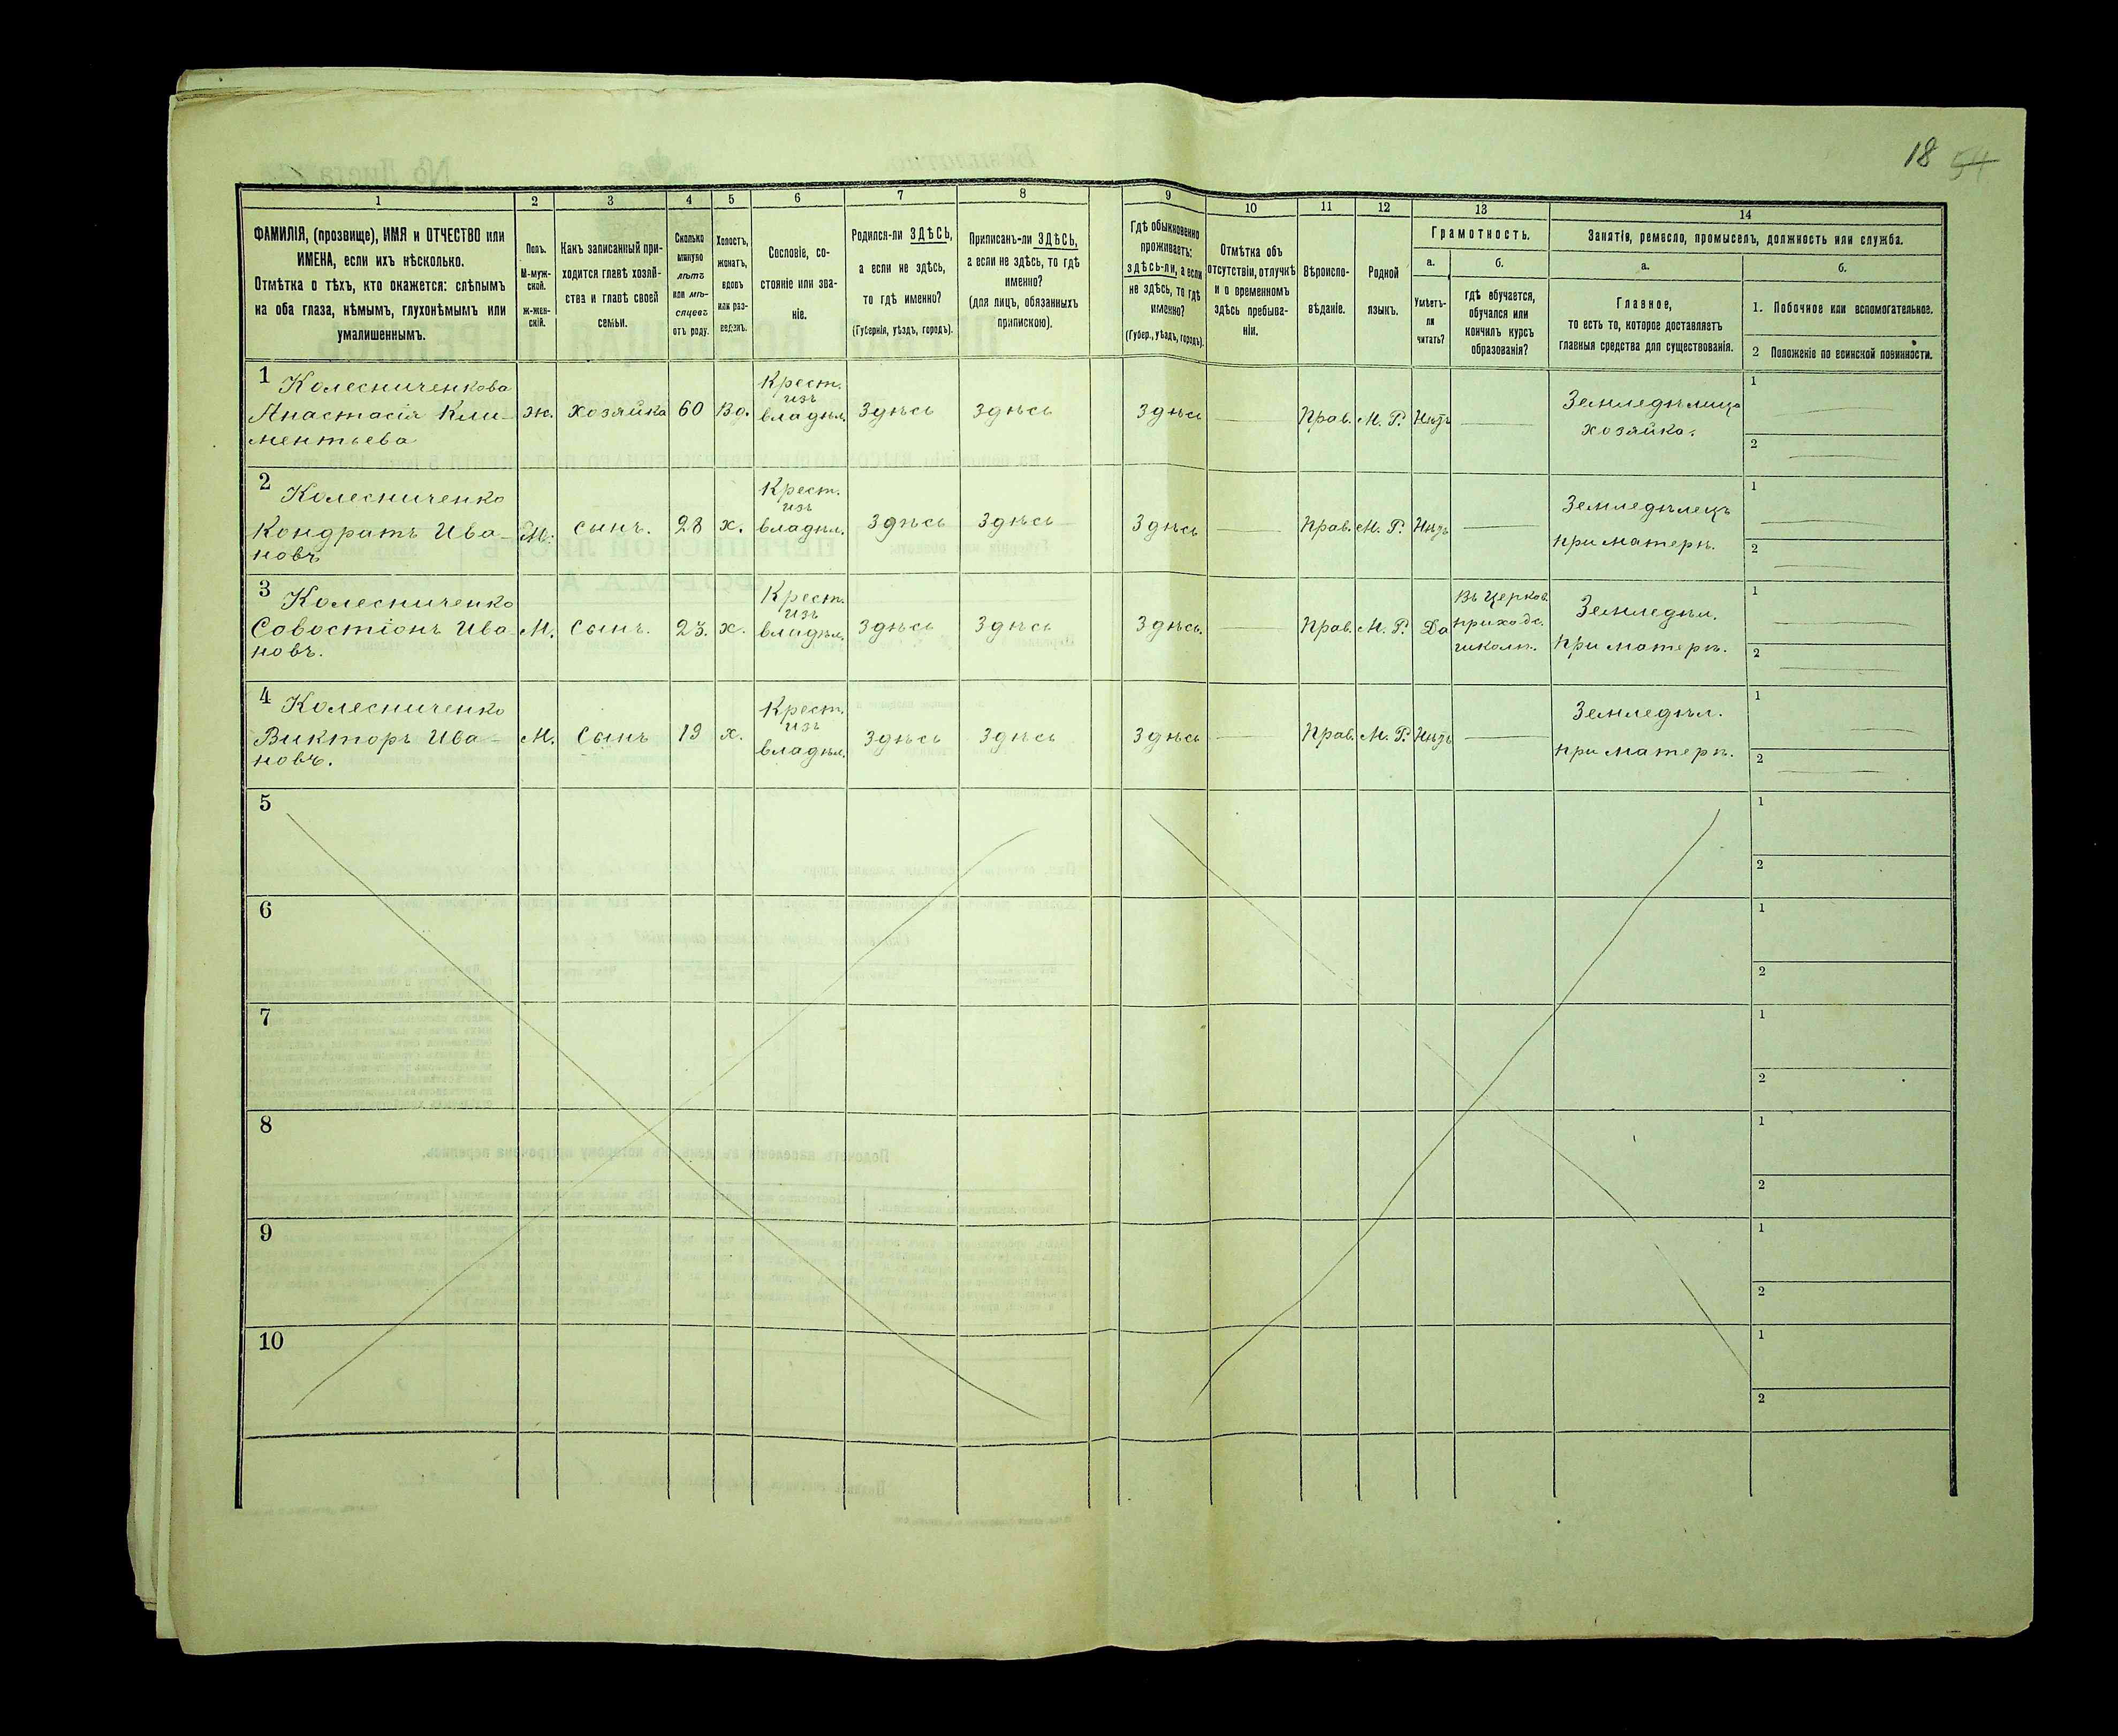 18 54
1 2 3 4 5 6 7 8 9 10 11 12 13 14
ФАМИЛІЯ, (прозвище), ИМЯ и ОТЧЕСТВО или
ИМЕНА, если ихъ нѣсколько.
Отмѣтка о тѣхъ, кто окажется: слѣпымъ
на оба глаза, нѣмымъ, глухонѣмымъ или
умалишеннымъ.
Полъ.
М-муж-
ской.
ж-жен-
скій.
Какъ записанный при-
ходится главѣ хозяй-
ства и главѣ своей
семьи.
Сколько
минуло
лѣтъ
или мѣ-
сяцевъ
отъ роду.
Холостъ,
женатъ,
вдовъ
или раз-
веденъ.
Сословіе, со-
стояніе или зва-
ніе.
Родился-ли ЗДѢСЬ,
а если не здѣсь,
то гдѣ именно?
(Губернія, уѣздъ, городъ).
Приписанъ-ли ЗДѢСЬ,
а если не здѣсь, то гдѣ
именно?
(для лицъ, обязанныхъ
припискою).
Гдѣ обыкновенно
проживаетъ:
здѣсь-ли, а если
не здѣсь, то гдѣ
именно?
(Губер., уѣздъ, городъ).
Отмѣтка объ
отсутствіи, отлучкѣ
и о временномъ
здѣсь пребыва-
ніи.
Вѣроиспо-
вѣданіе.
Родной
языкъ.
Грамотность.
а.
Умѣетъ-
ли
читать?
б.
гдѣ обучается,
обучался или
кончилъ курсъ
образованія?
Занятія, ремесло, промыселъ, должность или служба.
а.
Главное,
то есть то, которое доставляетъ
главныя средства для существованія.
б.
1. Побочное или вспомогательное.
2 Положеніе по воинской повинности.
1 Колесниченкова
Анастасія Кли-
ментьева
ж. хозяйка 60 Вд.
Крест.
изъ
владѣл.
здѣсь здѣсь здѣсь Прав. М. Р. Нѣтъ
Земледѣлица
хозяйка.
1
2
2 Колесниченко
Кондратъ Ива-
новъ
М. сынъ. 28 х.
Крест.
изъ
владѣл.
здѣсь здѣсь здѣсь Прав. М. Р. Нѣтъ
Земледѣлецъ
при матери.
1
2
3 Колесниченко
Совостіонъ Ива-
новъ.
М. Сынъ. 23. х.
Крест.
изъ
владѣл.
здѣсь здѣсь здѣсь. Прав. М. Р. Да
Въ Церков.
приходс.
школѣ.
Земледѣл.
при матерѣ.
1
2
4 Колесниченко
Викторъ Ива-
новъ.
М. Сынъ 19 х.
Крест.
изъ
владѣл.
здѣсь здѣсь здѣсь Прав. М. Р. Нѣтъ
Земледѣл.
при матерѣ.
1
2
5
1
2
6
1
2
7
1
2
8
1
2
9
1
2
10
1
2